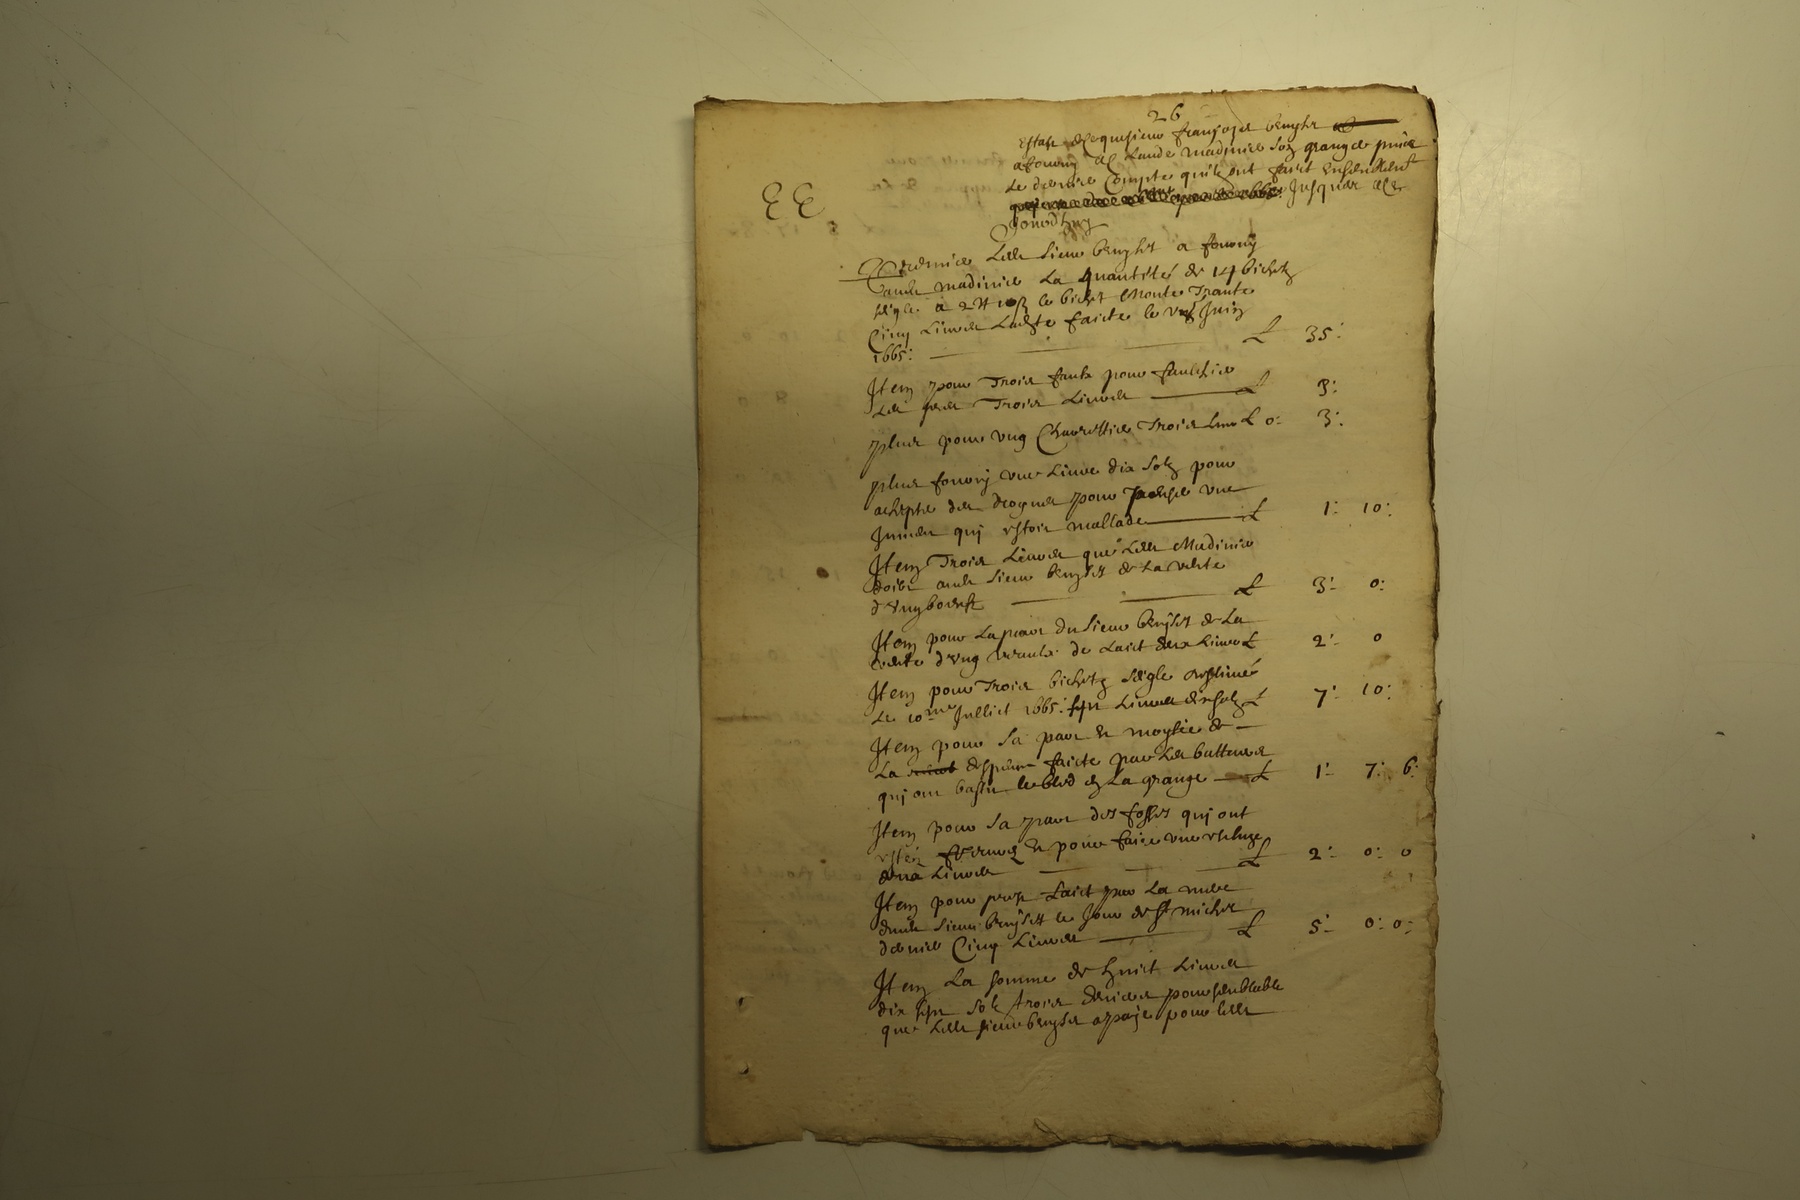 26
Estat de ce que sieur françois bruyset
a fourny a Claude madinier son grangier puis
le dernier Compte qu'ilz ont faict Ensemblem.t
Jusques a ce
Jourdhuy
EE
Premier Ledt sieur bruyset a fourny
audt madinier La quantité de 14 bichetz
seigle a 2 tt 10 ß le bichet Monte Trante
Cinq Livres faicte le Juin
1665: £ 35:
Item pour Trois faulx pour faulcher
Les prez Trois Livres £ 3:
plus pour ung Trois Livres £ 0: 3:
plus fourny une Livre dix solz pour
achepter des drogues pour une
Jument qui estoit mallade £ 1: 10:
Item Trois Livres que Ledt Madinier
doibt audt sieur bruyset de La vente
d'Ung £ 3: 0:
Item pour La part du sieur bruyset de La
vente d'Ung veaulx de Laict deux Livres £ 2: 0
Item pour Trois bichetz seigle
Le 10me Julliet 1665: sept Livres dix solz £ 7: 10:
Item pour sa part Et moytié de
La despence faicte par Les batteurs
qui ont battu le bled en La grange £ 1: 7: 6:
Item pour sa part des fosses qui ont
estéz Et pour faire une
deux Livres £ 2: 0: 0
Item pour prest faict par La mere
dudt sieur bruyset le Jour de St michel
dernier Cinq Livres £ 5: 0: 0:
Item La somme de huict Livres
dix sept solz trois deniers pour semblable
que Ledt sieur bruyset a paye pour ledt